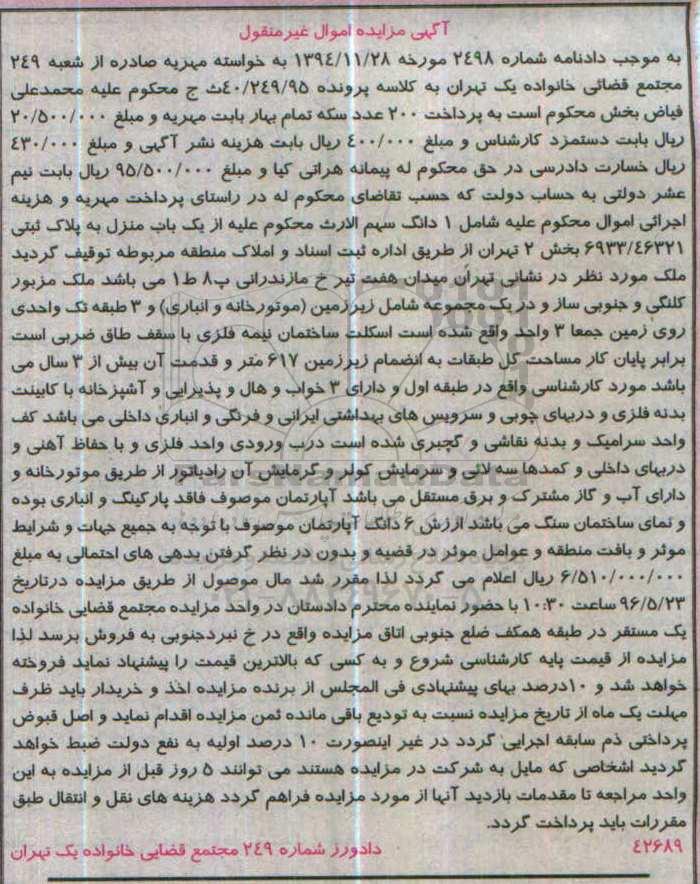 آگهی مزایده اموال غیرمنقول
به موجب دادنامه شماره ۲۴۹۸ مورخه ۱۳۹۴/۱۱/۲۸ به خواسته مهریه صادره از شعبه ۲۴۹
مجتمع قضائی خانواده یک تهران به کلاسه پرونده ۴۰/۲۴۹/۹۵ث ج محکوم علیه محمدعلی
فیاض بخش محکوم است به پرداخت ۲۰۰ عدد سکه تمام بهار بابت مهریه و مبلغ ۲۰/۵۰۰/۰۰۰
ریال بابت دستمزد کارشناس و مبلغ ۴۰۰/۰۰۰ ریال بابت هزینه نشر آگهی و مبلغ ۴۳۰/۰۰۰
ریال خسارت دادرسی در حق محکوم له پیمانه هراتی کیا و مبلغ ۹۵/۵۰۰/۰۰۰ ریال بابت نیم
عشر دولتی به حساب دولت که حسب تقاضای محکوم له در راستای پرداخت مهریه و هزینه
اجرائی اموال محکوم علیه شامل ۱ دانگ سهم الارث محکوم علیه از یک باب منزل به پلاک ثبتی
۶۹۳۳/۴۶۳۲۱ بخش ۲ تهران از طریق اداره ثبت اسناد و املاک منطقه مربوطه توقیف گردید
ملک مورد نظر در نشانی تهران میدان هفت تیر خ مازندرانی پ۸ ط۱ می باشد ملک مزبور
کلنگی و جنوبی ساز و در یک مجموعه شامل زیرزمین (موتورخانه و انباری) و ۳ طبقه تک واحدی
روی زمین جمعا ۳ واحد واقع شده است اسکلت ساختمان نیمه فلزی با سقف طاق ضربی است
برابر پایان کار مساحت کل طبقات به انضمام زیرزمین ۶۱۷ متر و قدمت آن بیش از ۳ سال می
باشد مورد کارشناسی واقع در طبقه اول و دارای ۳ خواب و هال و پذیرایی و آشپزخانه با کابینت
بدنه فلزی و دربهای چوبی و سرویس های بهداشتی ایرانی و فرنگی و انباری داخلی می باشد کف
واحد سرامیک و بدنه نقاشی و گچبری شده است درب ورودی واحد فلزی و با حفاظ آهنی و
دربهای داخلی و کمدها سه لائی و سرمایش کولر و گرمایش آن رادیاتور از طریق موتورخانه و
دارای آب و گاز مشترک و برق مستقل می باشد آپارتمان موصوف فاقد پارکینگ و انباری بوده
و نمای ساختمان سنگ می باشد ارزش ۶ دانگ آپارتمان موصوف با توجه به جمیع جهات و شرایط
موثر و بافت منطقه و عوامل موثر در قضیه و بدون در نظر گرفتن بدهی های احتمالی به مبلغ
۶/۵۱۰/۰۰۰/۰۰۰ ریال اعلام می گردد لذا مقرر شد مال موصول از طریق مزایده درتاریخ
۹۶/۵/۲۳ ساعت ۱۰:۳۰ با حضور نماینده محترم دادستان در واحد مزایده مجتمع قضایی خانواده
یک مستقر در طبقه همکف ضلع جنوبی اتاق مزایده واقع در خ نبردجنوبی به فروش برسد لذا
مزایده از قیمت پایه کارشناسی شروع و به کسی که بالاترین قیمت را پیشنهاد نماید فروخته
خواهد شد و ۱۰درصد بهای پیشنهادی فی المجلس از برنده مزایده اخذ و خریدار باید ظرف
مهلت یک ماه از تاریخ مزایده نسبت به تودیع باقی مانده ثمن مزایده اقدام نماید و اصل قبوض
پرداختی ذم سابقه اجرایی گردد در غیر اینصورت ۱۰ درصد اولیه به نفع دولت ضبط خواهد
گردید اشخاصی که مایل به شرکت در مزایده هستند می توانند ۵ روز قبل از مزایده به این
واحد مراجعه تا مقدمات بازدید آنها از مورد مزایده فراهم گردد هزینه های نقل و انتقال طبق
مقررات باید پرداخت گردد.
۴۲۶۸۹ دادورز شماره ۲۴۹ مجتمع قضایی خانواده یک تهران